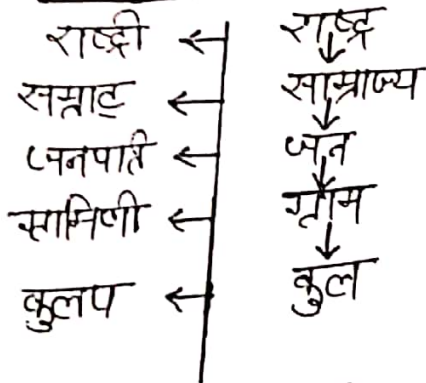 राष्ट्री ← राष्ट्र
↓
सम्राट् ← साम्राज्य
↓
जनपति ← जन
↓
ग्रामिणी ← ग्राम
↓
कुलप ← कुल